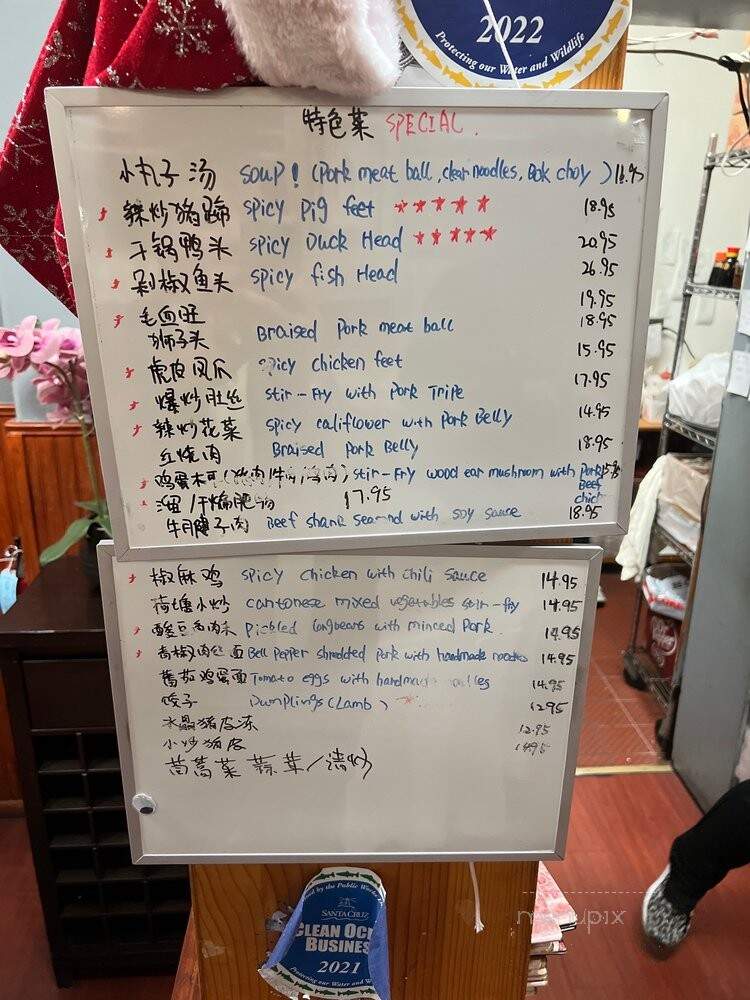 2022
Protecting our Water and Wildlife
特色菜 SPECIAL.
小丸子汤 soup! (Pork meat ball, clear noodles, Bok choy) 16.95
辣炒猪蹄 spicy pig feet ★★★★★ 18.95
干锅鸭头 spicy Duck Head ★★★★★ 20.95
剁椒鱼头 spicy fish Head 26.95
毛血旺 19.95
狮子头 Braised Pork meat ball 18.95
虎皮凤爪 spicy chicken feet 15.95
爆炒肚丝 stir-fry with Pork Tripe 17.95
辣炒花菜 spicy califlower with Pork Belly 14.95
红烧肉 Braised Pork Belly 18.95
鸡蛋木耳 stir-Fry wood ear mushroom with Pork
Beef
溜/干煸肥肠 17.95
牛腱子肉 Beef shank with soy sauce 18.95
椒麻鸡 spicy chicken with chili sauce 14.95
荷塘小炒 cantonese mixed vegetables stir-fry 14.95
酸豆角肉末 with minced Pork 14.95
青椒肉丝面 Bell Pepper shredded pork with handmade noodles 14.95
蕃茄鸡蛋面 Tomato eggs with 14.95
饺子 Dumplings (Lamb) 12.95
水晶猪皮冻 12.95
小炒猪皮 14.95
茼蒿菜 蒜茸/清炒
by the Public Works
SANTA CRUZ
CLEAN OC
BUSINES
2021
Protecting our Water and Wi
menupix